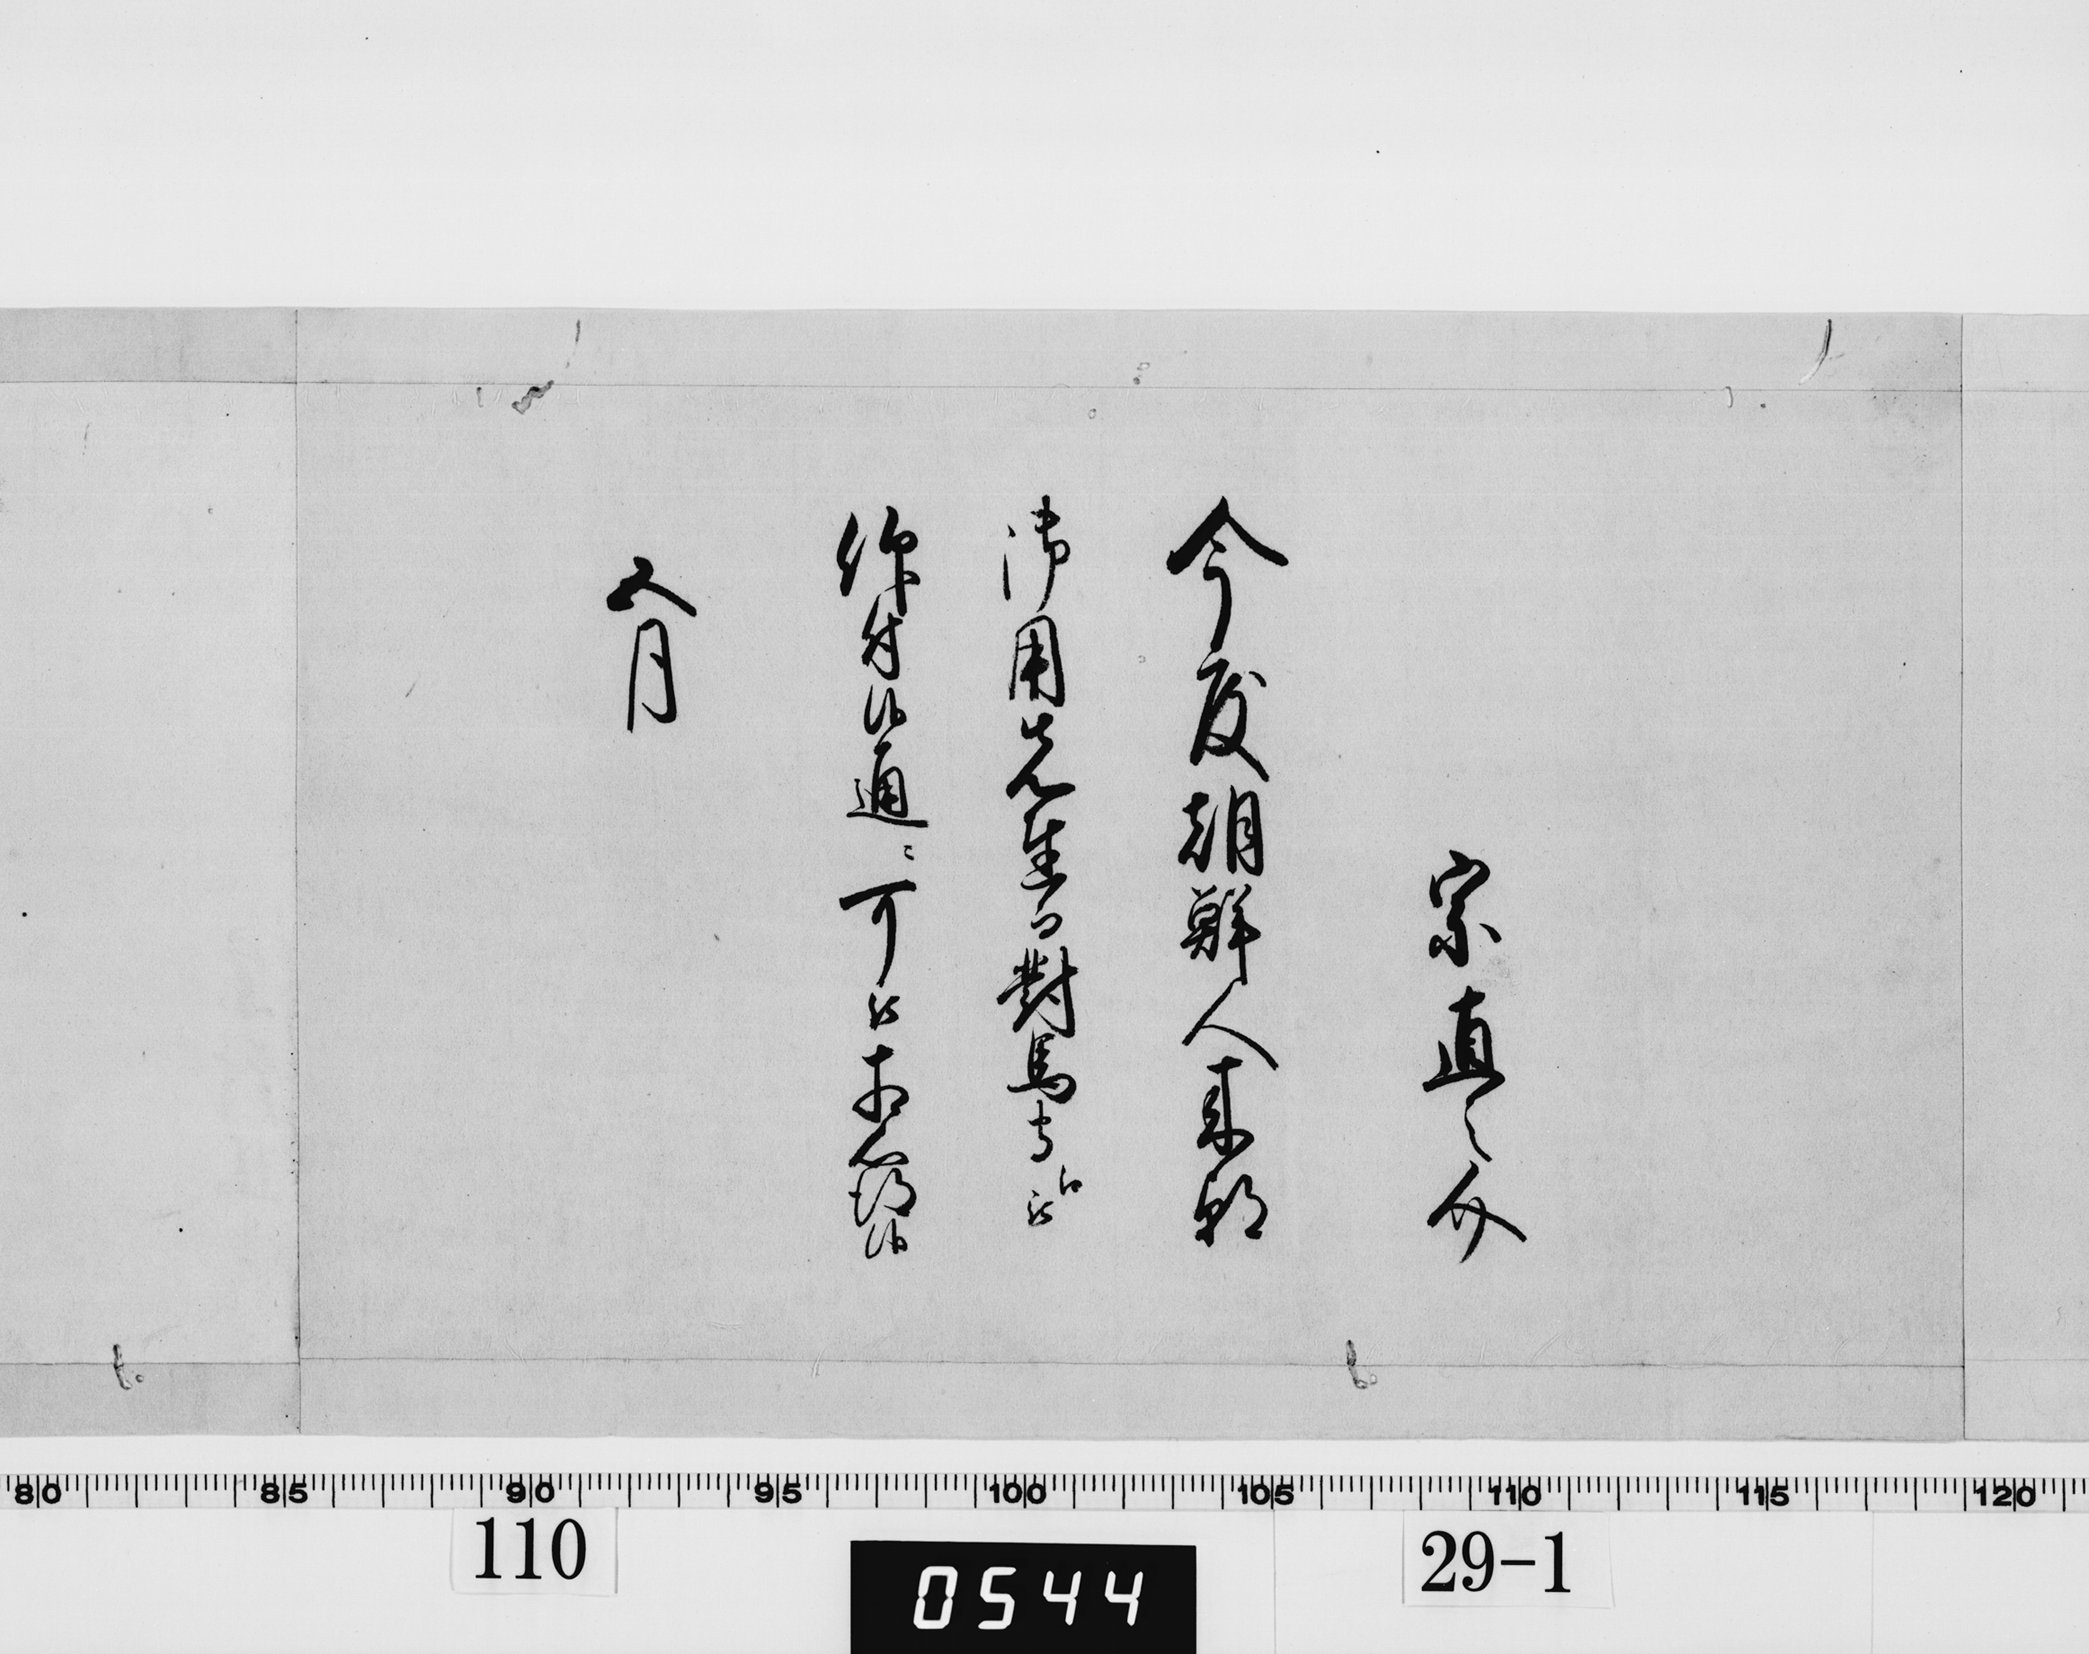 宗直之介
今度朝鮮人来朝
御用先達而對馬守江
仰付候通ニ可被相心得候
五月
80 85 90 95 100 105 110 115 120
110
0544
29-1